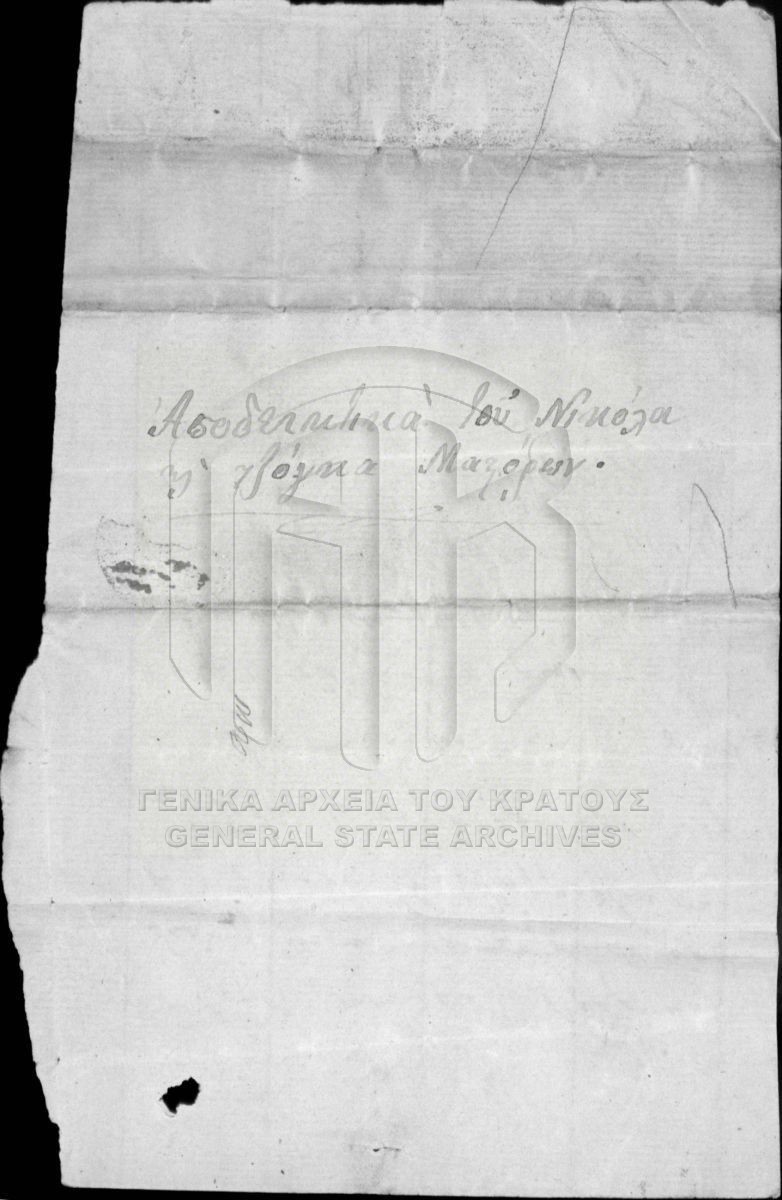 Ἀποδεικτικὰ τοῦ Νικόλα
κὶ τζόγκα Μαζόρων.
ΓΕΝΙΚΑ ΑΡΧΕΙΑ ΤΟΥ ΚΡΑΤΟΥΣ
GENERAL STATE ARCHIVES